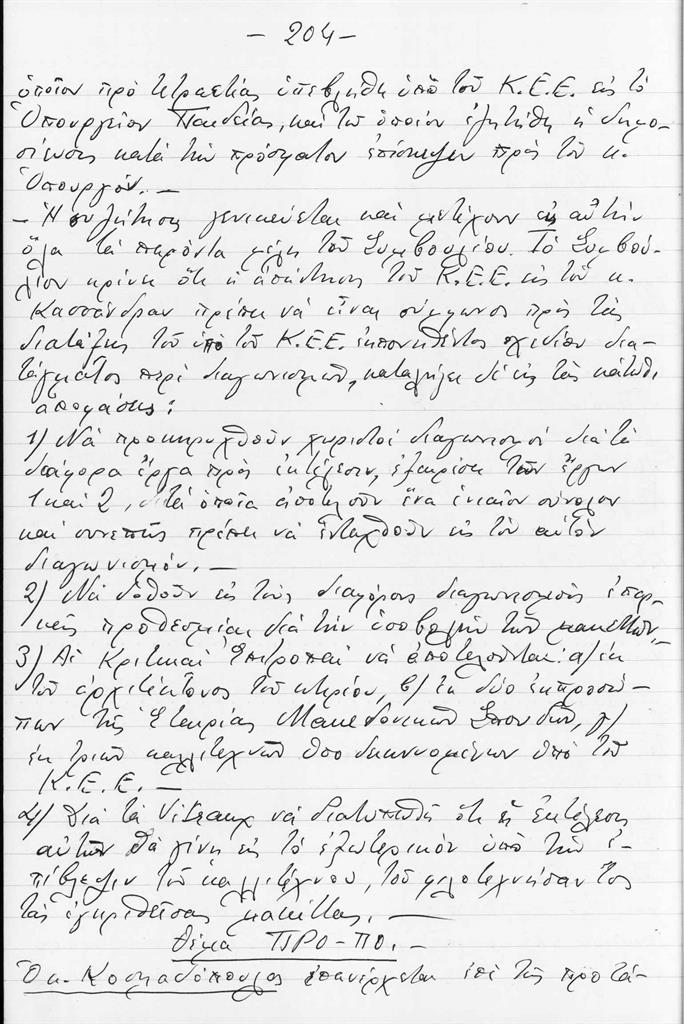 - 204 -
ὁποῖον πρὸ τετραετίας ὑπεβλήθη ὑπὸ τοῦ Κ.Ε.Ε. εἰς τὸ
Ὑπουργεῖον Παιδείας, καὶ τοῦ ὁποίου ἐζητήθη ἡ δημο-
σίευσις κατὰ τὴν πρόσφατον ἐπίσκεψιν πρὸς τὸν κ.
Ὑπουργόν. -
- Ἡ συζήτησις γενικεύεται καὶ μετέχουν εἰς αὐτὴν
ὅλα τὰ παρόντα μέλη τοῦ Συμβουλίου. Τὸ Συμβού-
λιον κρίνει ὅτι ἡ ἀπάντησις τοῦ Κ.Ε.Ε. εἰς τὸν κ.
Κασσάνδραν πρέπει νὰ εἶναι σύμφωνος πρὸς τὰς
διατάξεις τοῦ ὑπὸ τοῦ Κ.Ε.Ε. ἐκπονηθέντος σχεδίου δια-
τάγματος περὶ διαγωνισμῶν, καταλήγει δὲ εἰς τὰς κάτωθι
ἀποφάσεις:
1) Νὰ προκηρυχθοῦν χωριστοὶ διαγωνισμοὶ διὰ τὰ
διάφορα ἔργα πρὸς ἐκτέλεσιν, ἐξαιρέσει τῶν ἔργων
1 καὶ 2, τὰ ὁποῖα ἀποτελοῦν ἕνα ἑνιαῖον σύνολον
καὶ συνεπῶς πρέπει νὰ ἐνταχθοῦν εἰς τὸν αὐτὸν
διαγωνισμόν. -
2) Νὰ δοθοῦν εἰς τοὺς διαφόρους διαγωνισμοὺς ἐπαρ-
κεῖς προθεσμίαι διὰ τὴν ὑποβολὴν τῶν μακεττῶν. -
3) Αἱ Κριτικαὶ Ἐπιτροπαὶ νὰ ἀποτελοῦνται: α) ἐκ
τοῦ ἀρχιτέκτονος τοῦ κτιρίου, β) ἐκ δύο ἐκπροσώ-
πων τῆς Ἑταιρίας Μακεδονικῶν Σπουδῶν, γ)
ἐκ τριῶν καλλιτεχνῶν ὑποδεικνυομένων ὑπὸ τοῦ
Κ.Ε.Ε. -
4) Διὰ τὰ Vitraux νὰ διατυπωθῇ ὅτι ἡ ἐκτέλεσις
αὐτῶν θὰ γίνῃ εἰς τὸ ἐξωτερικὸν ὑπὸ τὴν ἐ-
πίβλεψιν τοῦ καλλιτέχνου, τοῦ φιλοτεχνήσαντος
τὰς ἐγκριθείσας μακέττας. -
Θέμα ΠΡΟ-ΠΟ. -
Ὁ κ. Κοσμαδόπουλος ἐπανέρχεται ἐπὶ τῆς προτά-